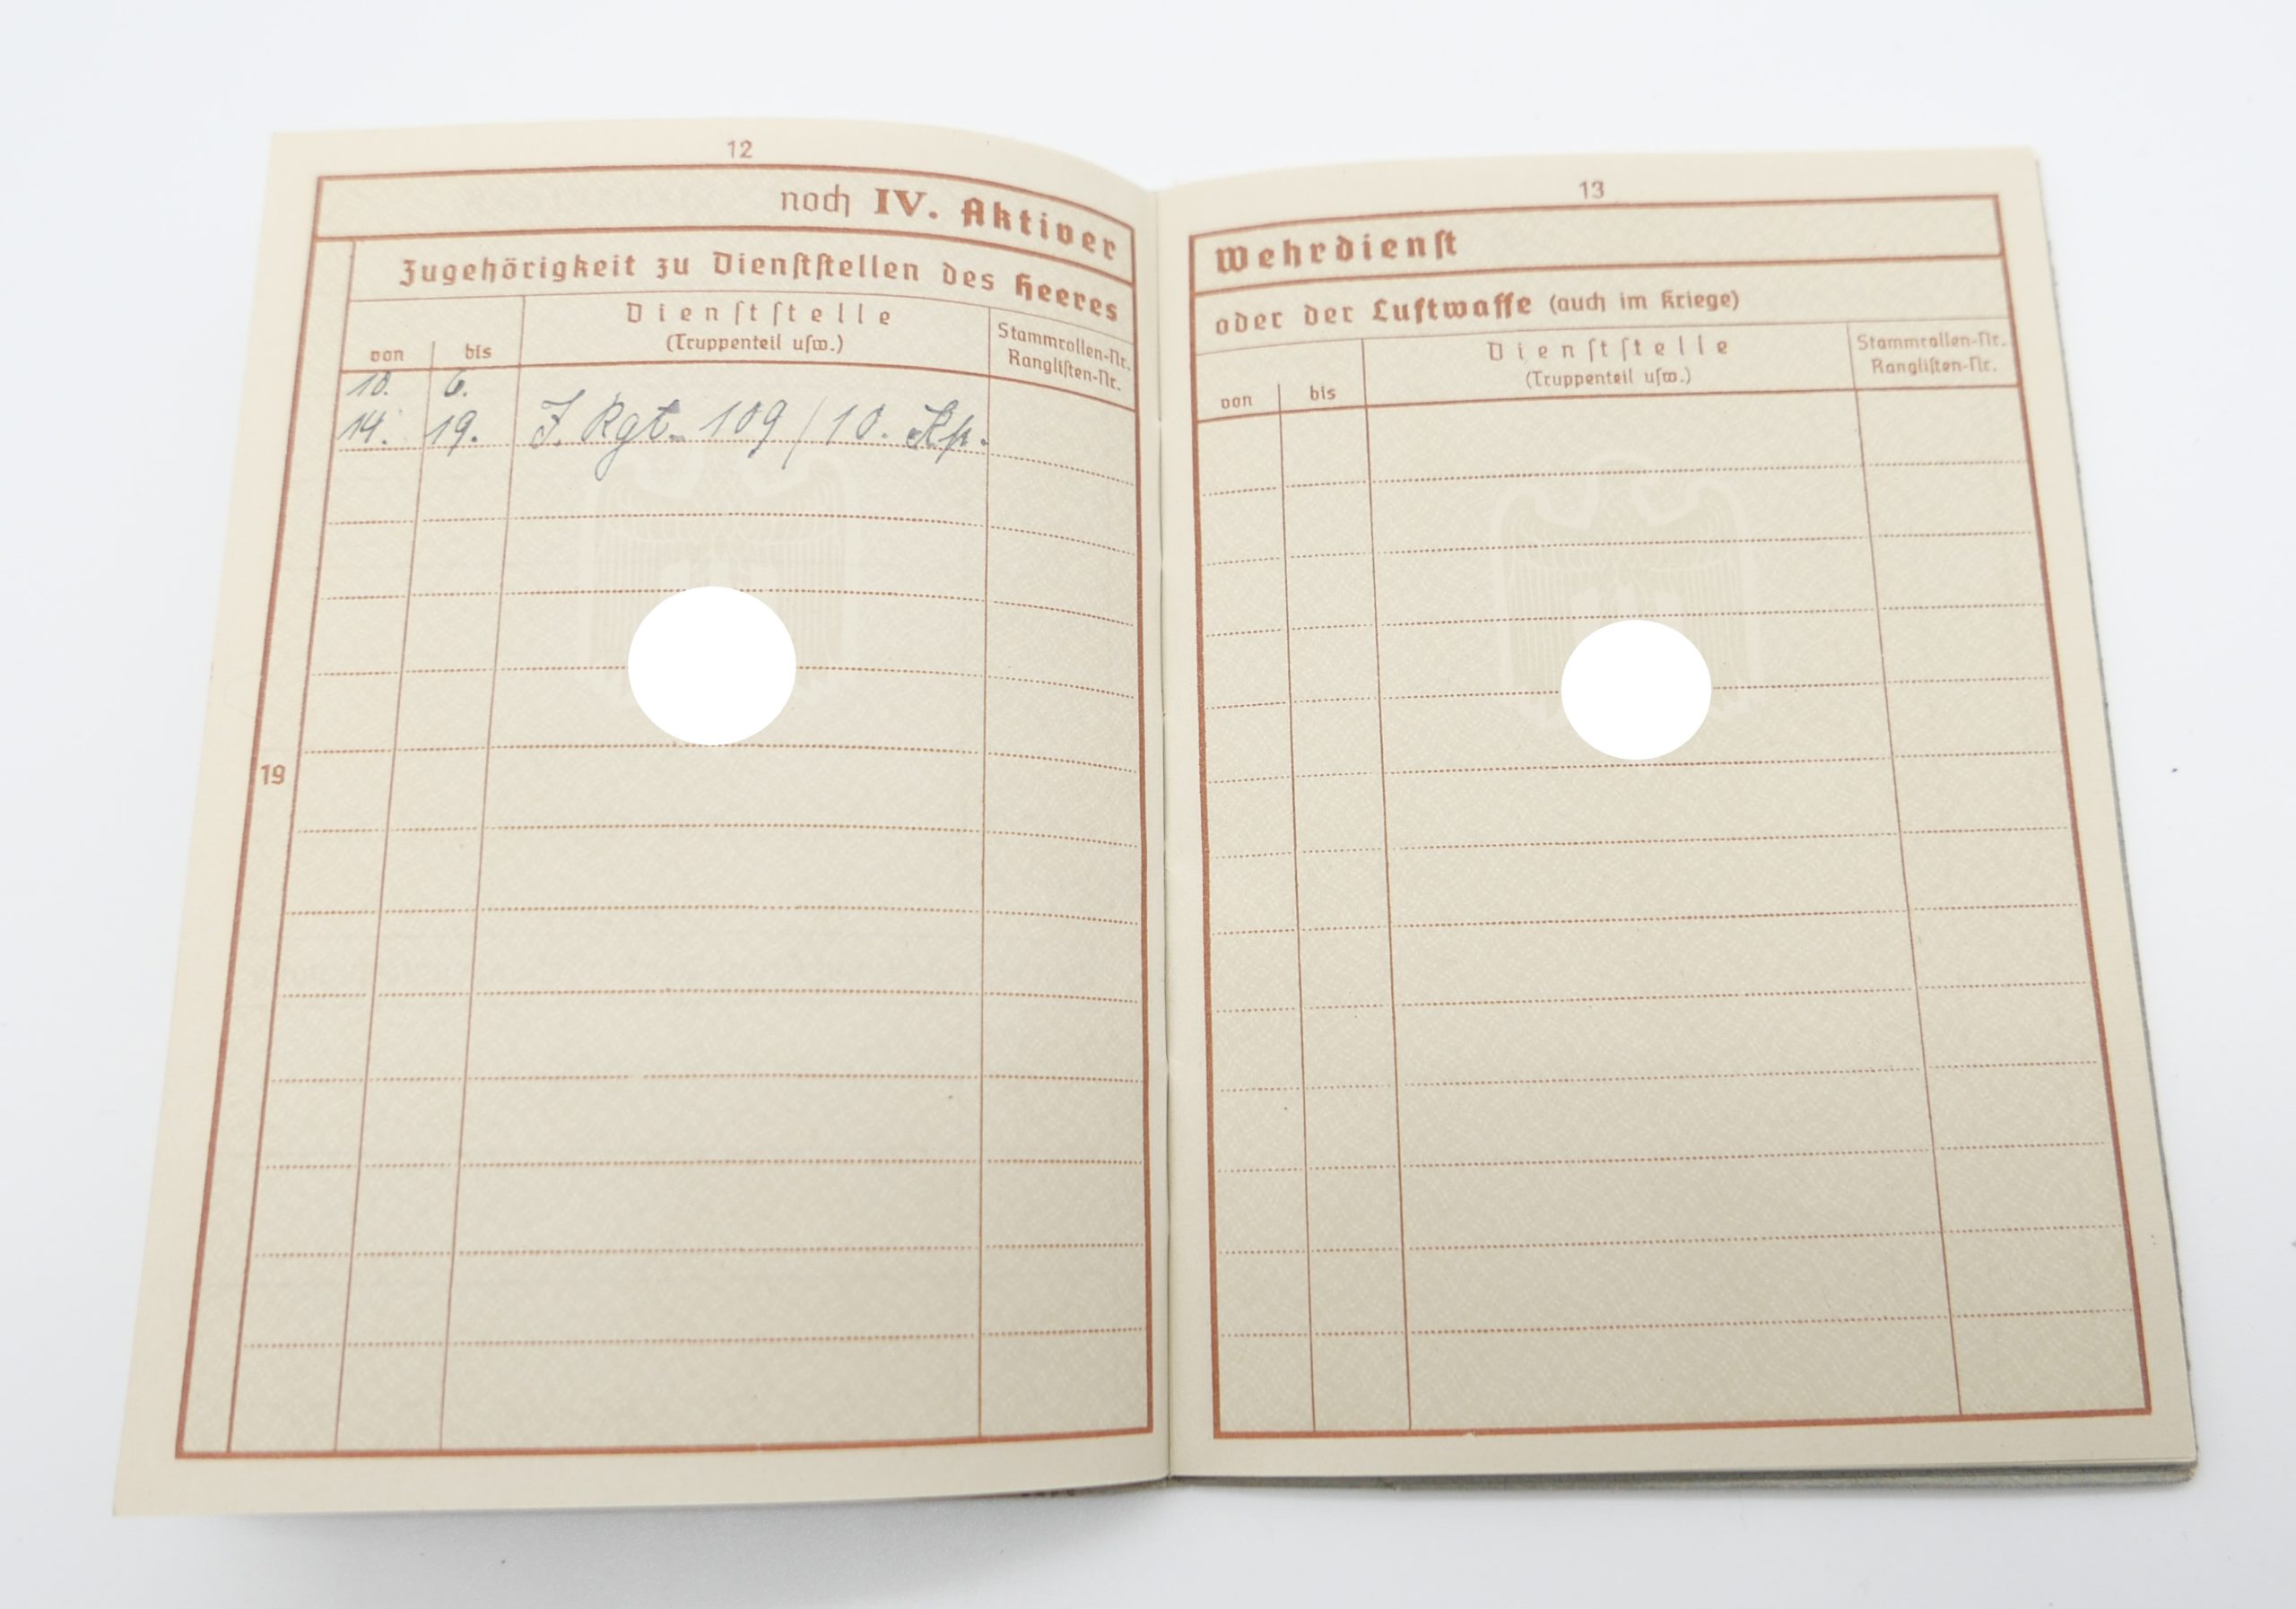 12
noch IV. Aktiver
Zugehörigkeit zu Dienſtſtellen des Heeres
von bis Dienſtſtelle (Truppenteil uſw.) Stammrollen-Nr. Rangliſten-Nr.
10. 6.
14. 19. J. Rgt. 109/10. Kp.
19
13
Wehrdienſt
oder der Luftwaffe (auch im Kriege)
von bis Dienſtſtelle (Truppenteil uſw.) Stammrollen-Nr. Rangliſten-Nr.